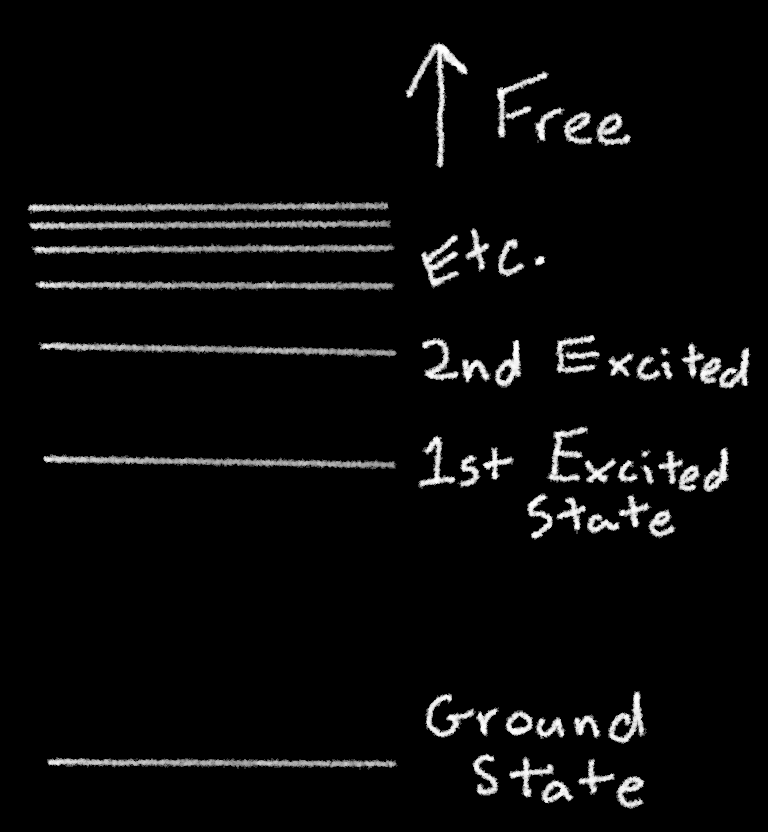 Free
Etc.
2nd Excited
1st Excited
State
Ground
State